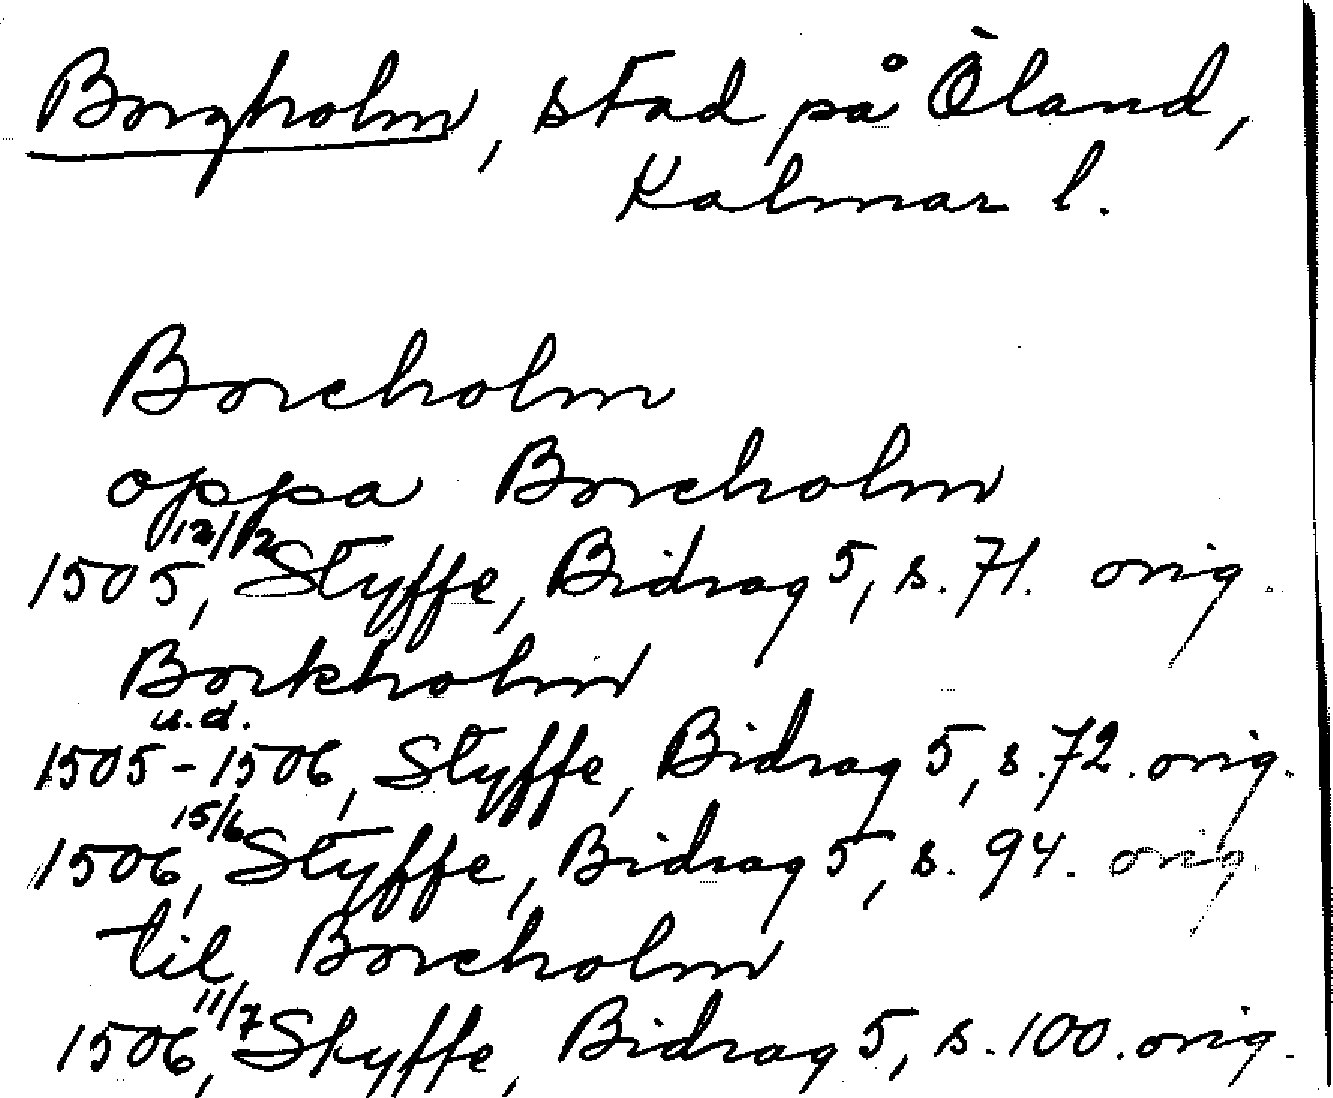 Borgholm, stad på Öland,
Kalmar l.
Borcholm
oppa Borcholm
1505 12/12, Styffe, Bidrag 5, s. 71. orig.
Borkholm
1505-1506 u.d., Styffe, Bidrag 5, s. 72. orig.
1506 15/6, Styffe, Bidrag 5, s. 94. orig.
til Borcholm
1506 11/7, Styffe, Bidrag 5, s. 100. orig.